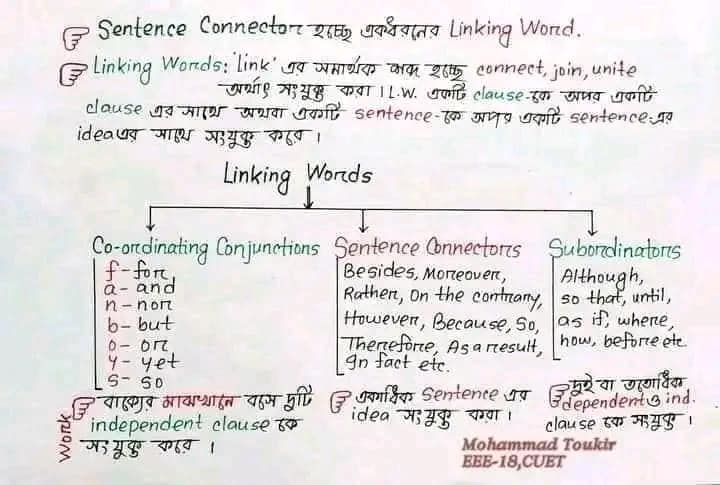 Sentence Connector হচ্ছে একধরনের Linking Word.
Linking Words: 'link' এর সমার্থক শব্দ হচ্ছে connect, join, unite
অর্থাৎ সংযুক্ত করা। L.W. একটি clause-কে অপর একটি
clause এর সাথে অথবা একটি sentence-কে অপর একটি sentence-এর
idea এর সাথে সংযুক্ত করে।
Linking Words
Co-ordinating Conjunctions
f - for
a - and
n - nor
b - but
o - or
y - yet
s - so
Work
বাক্যের মাঝখানে বসে দুটি
independent clause কে
সংযুক্ত করে।
Sentence Connectors
Besides, Moreover,
Rather, On the contrary,
However, Because, So,
Therefore, As a result,
In fact etc.
একাধিক Sentence এর
idea সংযুক্ত করা।
Subordinators
Although,
so that, until,
as if, where,
how, before etc.
দুই বা ততোধিক
dependent ও ind.
clause কে সংযুক্ত।
Mohammad Toukir
EEE-18,CUET